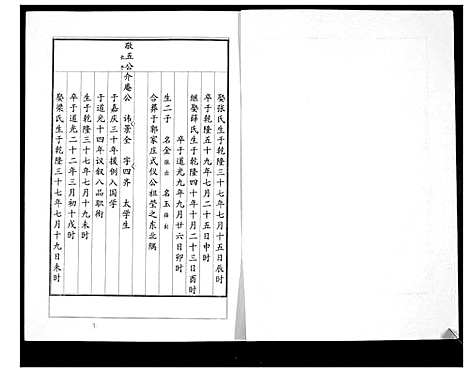 娶张氏生于乾隆三十七年七月十五日辰时
卒于乾隆五十九年七月二十五日申时
继娶薛氏生于乾隆四十年十月二十三日酉时
卒于道光九年九月廿六日卯时
生二子 名金 名玉
合葬于郭家庄式仪公祖茔之东北隅
敬五公介庵公 讳景全 字四齐 太学生
于嘉庆三十年援例入国学
于道光十四年议叙八品职衔
生于乾隆三十七年七月十九未时
卒于道光二十二年三月初十戌时
娶梁氏生于乾隆三十七年七月十九日未时